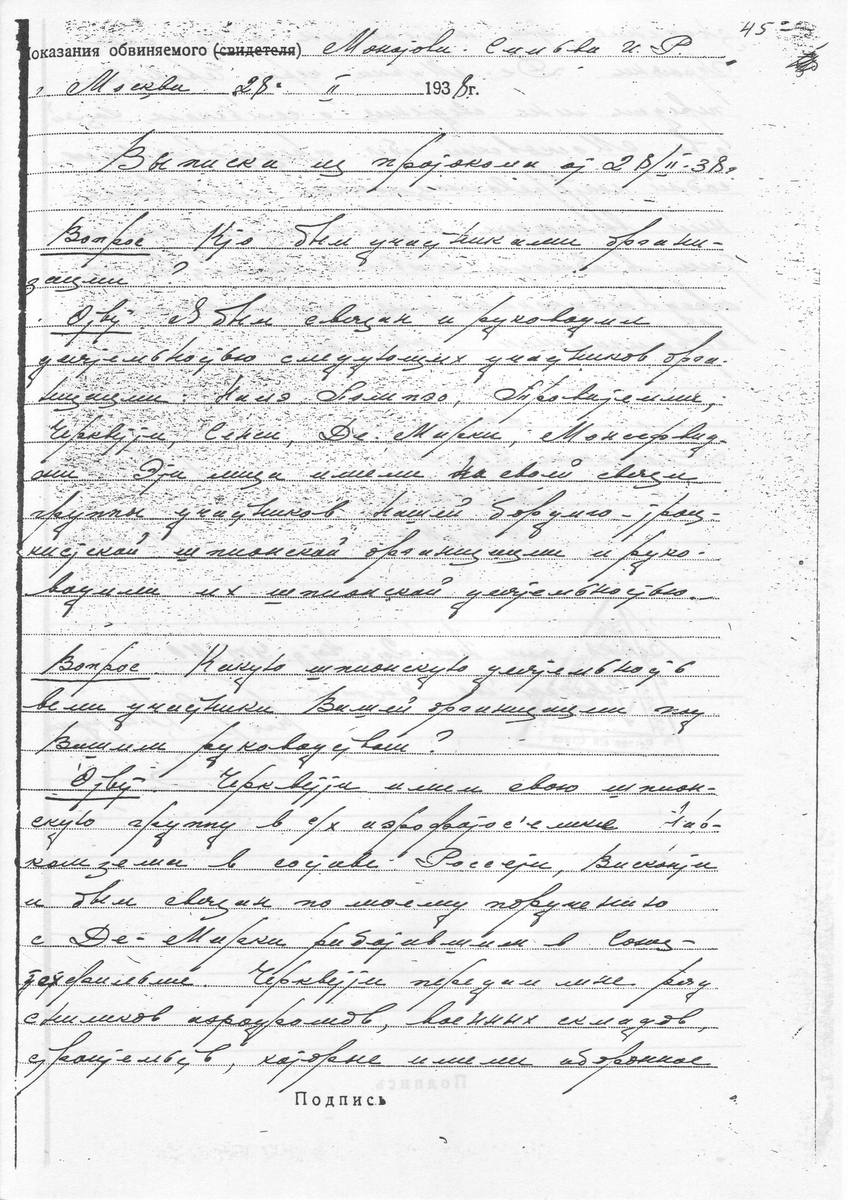 45
Показания обвиняемого (свидетеля) Монотова - Сильва И. Р
г. Москва 28. II 1938г.
Выписки из протокола от 28/II-38.
Вопрос Кто был участниками органи-
зации ?
Ответ. Я был связан и руководил
деятельностью следующих участников орга-
низации: Поллио,
Черкветти, Сенси, Де-Марки,
Эти лица имели на своей связи
группы участников нашей бордиго-троц-
кистской шпионской организации и руко-
водили их шпионской деятельностью.
Вопрос. Какую шпионскую деятельность
вели участники Вашей организации под
Вашим руководством ?
Ответ. Черкветти имел свою шпион-
скую группу в с/х аэрофотос'емике Нар-
комзема в составе Россети, Висконти
и был связан по моему поручению
с Де-Марки работавшим в Союз-
техфильме. Черкветти передал мне ряд
снимков аэродромов, военных складов,
строительств, которые имели оборонное
Подпись